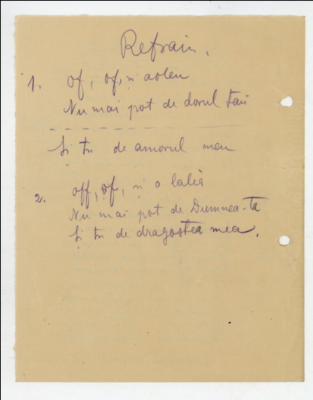 Refrain.
1. Of, of, și aoleu
Nu mai pot de dorul tău
Și tu de amorul meu
2. Off, of, și o lalea
Nu mai pot de Dumnea-ta
Și tu de dragostea mea.